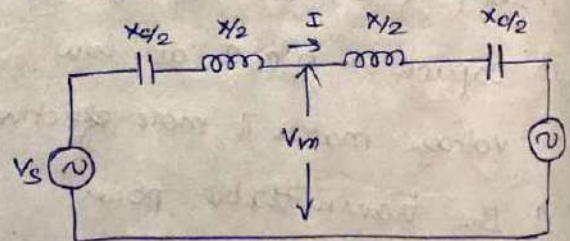 Xc/2 X/2 I X/2 Xc/2
Vm
Vs